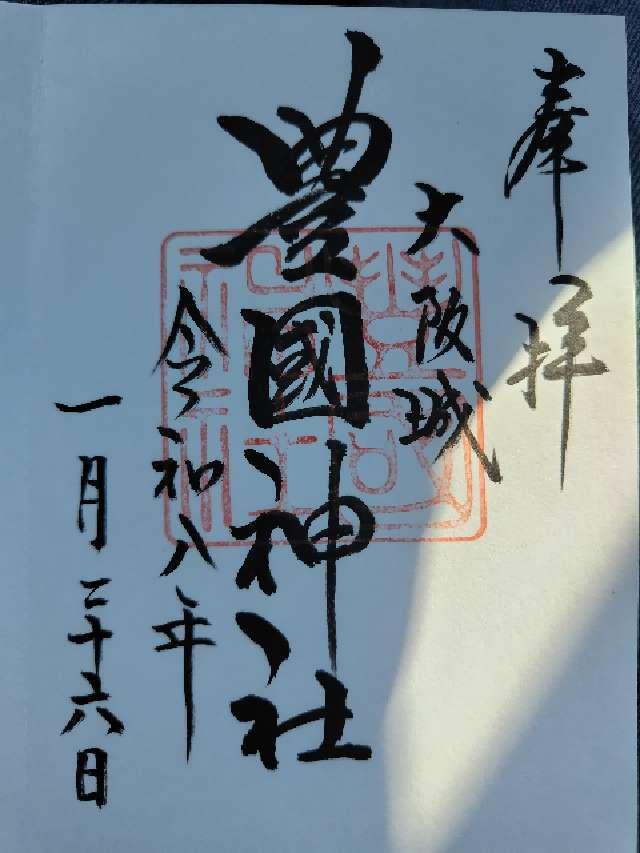 奉拝
大阪城
豊國神社
令和八年
一月二十六日